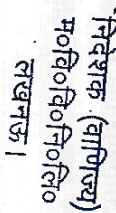 निदेशक (वाणिज्य)
म०वि०वि०नि०लि०
लखनऊ।